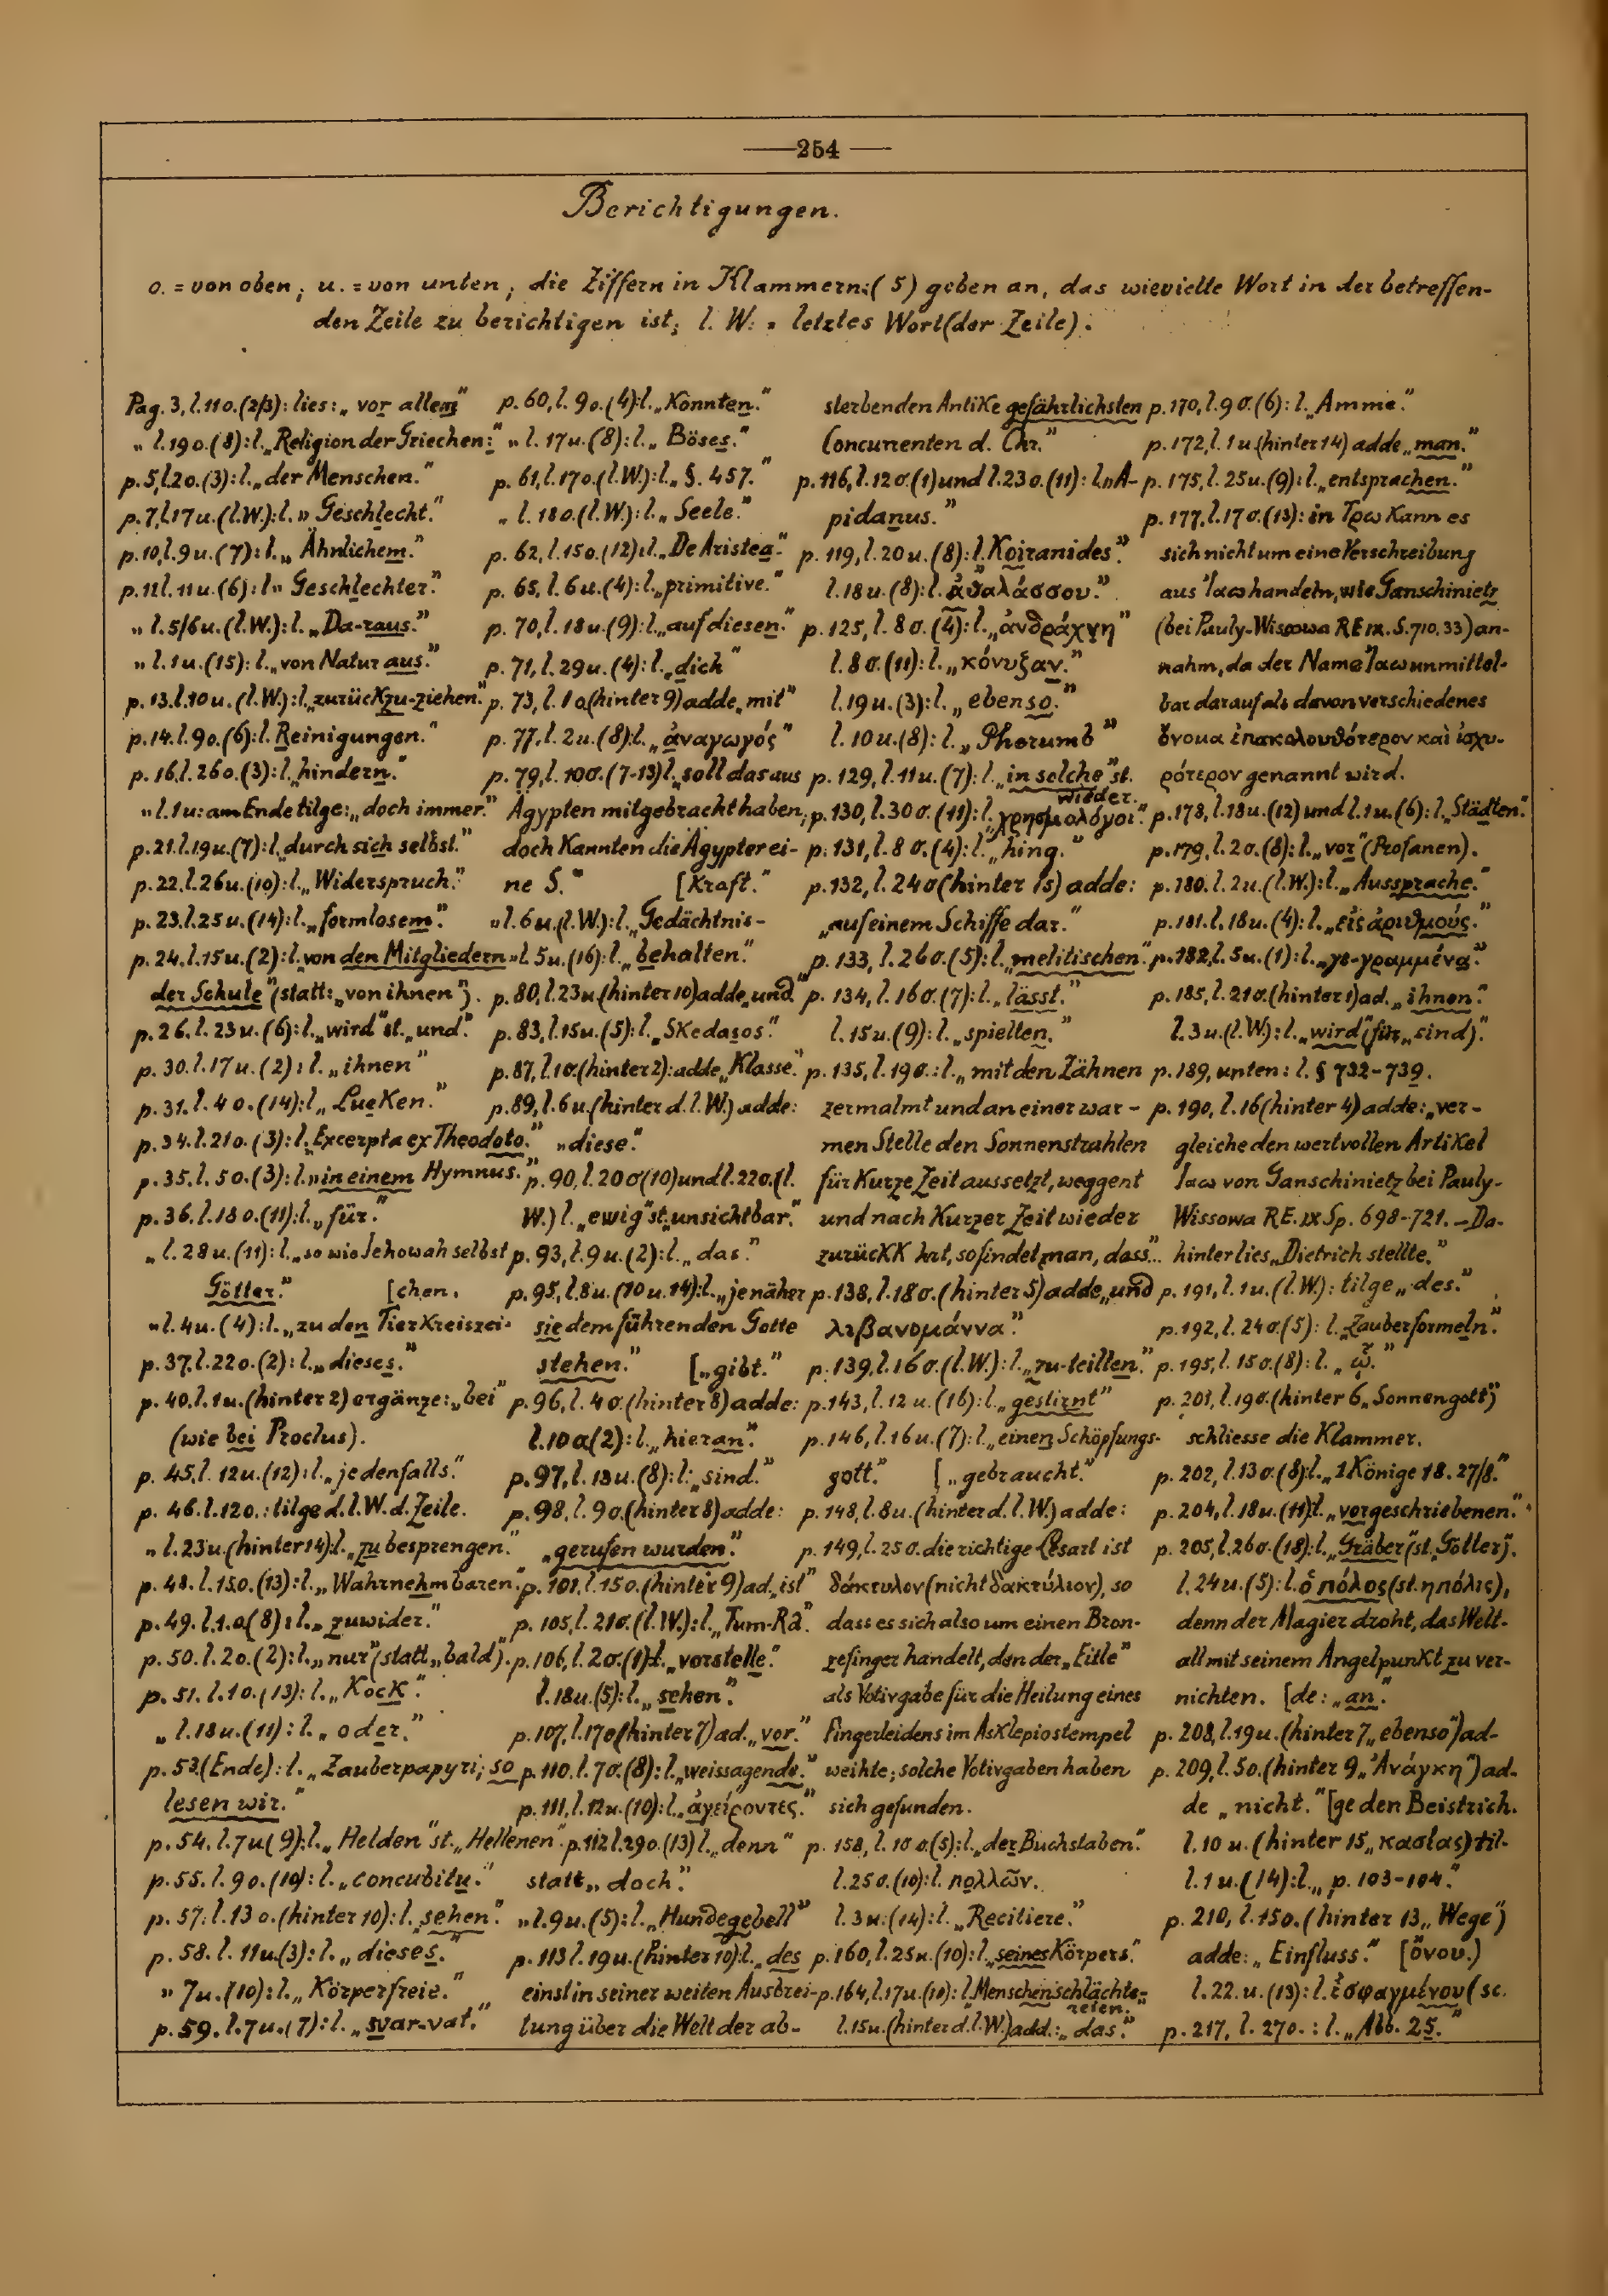 —254—
Berichtigungen.
o. = von oben; u. = von unten; die Ziffern in Klammern:(5) geben an, das wievielte Wort in der betreffen-
den Zeile zu berichtigen ist; l. W. = letztes Wort (der Zeile).
Pag. 3, l. 11 o. (2/3): lies: „vor allem"
" l. 19 o. (8): l. „Religion der Griechen:"
p. 5, l. 2 o. (3): l. „der Menschen."
p. 7, l. 17 u. (l. W.): l. „Geschlecht."
p. 10, l. 9 u. (7): l. „Ähnlichem."
p. 11 l. 11 u. (6): l „Geschlechter."
" l. 5/6 u. (l. W.): l. „Da-raus."
" l. 1 u. (15): l. „von Natur aus."
p. 13. l. 10 u. (l. W.): l. „zurückzu-ziehen."
p. 14. l. 9 o. (6): l. Reinigungen."
p. 16, l. 26 o. (3): l. „hindern."
" l. 1 u: am Ende tilge: „doch immer."
p. 21. l. 19 u. (7): l. „durch sich selbst."
p. 22. l. 26 u. (10): l. „Widerspruch."
p. 23. l. 25 u. (14): l. „formlosem."
p. 24. l. 15 u. (2): l. „von den Mitgliedern
der Schule" (statt: „von ihnen").
p. 26. l. 23 u. (6): l. „wird" st. „und."
p. 30. l. 17 u. (2): l. „ihnen"
p. 31. l. 4 o. (14): l „Lücken."
p. 34. l. 21 o. (3): l. Excerpta ex Theodoto."
p. 35. l. 5 o. (3): l. „in einem Hymnus."
p. 36. l. 18 o. (11): l. „für."
" l. 28 u. (11): l. „so wie Jehowah selbst
Götter." [chen.
" l. 4 u. (4): l. „zu den Tierkreiszei-
p. 37. l. 22 o. (2): l. „dieses."
p. 40. l. 1 u. (hinter 2) ergänze: „bei"
(wie bei Proclus).
p. 45, l. 12 u. (12): l. „jedenfalls."
p. 46. l. 12 o.: tilge d. l. W. d. Zeile.
" l. 23 u. (hinter 14): l. „zu besprengen."
p. 48. l. 15 o. (13): l. „Wahrnehmbaren."
p. 49. l. 1. o (8): l. „zuwider."
p. 50. l. 2 o. (2): l. „nur" (statt „bald").
p. 51. l. 1 o. (13): l. „Kock".
" l. 18 u. (11): l. „oder."
p. 53. (Ende): l. „Zauberpapyri; so
lesen wir."
p. 54. l. 7 u (9): l. „Helden" st. „Hellenen"
p. 55. l. 9 o. (10): l. „concubitu."
p. 57. l. 13 o. (hinter 10): l. „sehen".
p. 58. l. 11 u. (3): l. „dieses."
" 7 u. (10): l. „Körperfreie."
p. 59. l. 7 u. (7): l. „svar-vat."
p. 60, l. 9 o. (4): l. „Könnten."
" l. 17 u. (8): l. „Böses."
p. 61, l. 17 o. (l. W.): l. „§. 457."
" l. 18 o. (l. W.): l. „Seele."
p. 62, l. 15 o. (12): l. „De Aristea."
p. 65, l. 6 u. (4): l. „primitive."
p. 70, l. 18 u. (9): l. „auf diesen."
p. 71, l. 29 u. (4): l. „dich"
p. 73, l. 1 o (hinter 9) adde „mit"
p. 77, l. 2 u. (8): l. „ἀναγωγός"
p. 79, l. 10 o. (7-13) l. „soll das aus
Ägypten mitgebracht haben,
doch Kannten die Ägypter ei-
ne S." [Kraft."
" l. 6 u. (l. W.): l. „Gedächtnis-
" l. 5 u. (16): l. „behalten."
p. 80, l. 23 u. (hinter 10) adde „und"
p. 83, l. 15 u. (5): l. „Skedasos."
p. 87, l. 1 o. (hinter 2): adde „Klasse."
p. 89, l. 6 u. (hinter d. l. W.) adde:
„diese."
p. 90, l. 20 o (10) und l. 22 o. (l.
W.) l. „ewig" st. „unsichtbar."
p. 93, l. 9 u. (2): l. „das."
p. 95, l. 8 u. (10 u. 14): l. „je näher
sie dem führenden Gotte
stehen." [„gibt."
p. 96, l. 4 o. (hinter 8) adde:
l. 10 o (2): l. „hieran".
p. 97, l. 13 u. (8): l: „sind."
p. 98, l. 9 o. (hinter 8) adde:
„gerufen wurden."
p. 101, l. 15 o. (hinter 9) ad. „ist"
p. 105, l. 21 o. (l. W.): l. „Tum-Râ".
p. 106, l. 2 o. (1) l. „vorstelle."
l. 18 u. (5): l. „sehen".
p. 107, l. 17 o (hinter 7) ad. „vor."
p. 110. l. 7 o. (8): l. „weissagende."
p. 111, l. 12 u. (10): l. „ἀγείροντες."
p. 112 l. 29 o. (13) l. „denn"
statt „doch".
" l. 9 u. (5): l. „Hundegebell"
p. 113 l. 19 u. (hinter 10): l. „des
einst in seiner weiten Ausbrei-
tung über die Welt der ab-
sterbenden Antike gefährlichsten
Concurrenten d. Chr."
p. 116, l. 12 o. (1) und l. 23 o. (11): l. „A-
pidanus."
p. 119, l. 20 u. (8): l. Koiranides."
l. 18 u. (8): l. ἀθαλάσσου."
p. 125, l. 8 o. (4): l. „ἀνδράχνη"
l. 8 o. (11): l. „κόνυξαν."
l. 19 u. (3): l. „ebenso."
l. 10 u. (8): l. „Phorumb"
p. 129, l. 11 u. (7): l. „in solche" st.
wieder.
p. 130, l. 30 o. (11): l. „χρησμολόγοι."
p. 131, l. 8 o. (4): l. „hing."
p. 132, l. 24 o (hinter 15) adde:
„auf einem Schiffe dar."
p. 133, l. 26 o. (5): l. „melitischen."
p. 134, l. 16 o. (7): l. „lässt."
l. 15 u. (9): l. „spielten."
p. 135, l. 19 o.: l. „mit den Zähnen
zermalmt und an einer war-
men Stelle den Sonnenstrahlen
für Kurze Zeit aussetzt, weggent
und nach Kurzer Zeit wieder
zurückk hrt, so findet man, dass"...
p. 138, l. 18 o. (hinter 5) adde „und
λιβανομάννα".
p. 139, l. 16 o. (l. W.): l. „zu-teilten."
p. 143, l. 12 u. (16): l. „gestirnt"
p. 146, l. 16 u. (7): l. „einen Schöpfungs-
gott." [„gebraucht."
p. 148, l. 8 u. (hinter d. l. W.) adde:
p. 149, l. 25 o. die richtige Lesart ist
δάκτυλον (nicht δακτύλιον), so
dass es sich also um einen Bron-
zefinger handelt, den der „Eitle"
als Votivgabe für die Heilung eines
Fingerleidens im Asklepiostempel
weihte; solche Votivgaben haben
sich gefunden.
p. 158, l. 10 o. (5): l. „der Buchstaben."
l. 25 o. (10): l. πολλῶν.
l. 3 u. (14): l. „Recitiere."
p. 160, l. 25 u. (10): l. „seines Körpers."
p. 164, l. 17 u. (10): l. „Menschenschlächte-
reien."
l. 15 u. (hinter d. l. W.) add.: „das."
p. 170, l. 9 o. (6): l. „Amme."
p. 172, l. 1 u. (hinter 14) adde „man."
p. 175, l. 25 u. (9): l. „entsprachen."
p. 177. l. 17 o. (13): in Ἰρω Kann es
sich nicht um eine Verschreibung
aus Ἰαω handeln, wie Ganschinietz
(bei Pauly-Wissowa RE IX. S. 710, 33) an-
nahm, da der Name Ἰαω unmittel-
bar darauf als davon verschiedenes
ὄνομα ἐπακολουθότερον καὶ ἰσχυ-
ρότερον genannt wird.
p. 178, l. 18 u. (12) und l. 1 u. (6): l. „Städten."
p. 179, l. 2 o. (8): l. „vor" (Profanen).
p. 180. l. 2 u. (l. W.): l. „Aussprache."
p. 181. l. 18 u. (4): l. „εἰς ἀριθμούς."
p. 182, l. 5 u. (1): l. „γε-γραμμένα."
p. 185, l. 21 o. (hinter 1) ad. „ihnen."
l. 3 u. (l. W.): l. „wird" (für „sind)."
p. 189, unten: l. § 732-739.
p. 190, l. 16 (hinter 4) adde: „ver-
gleiche den wertvollen Artikel
Iaω von Ganschinietz bei Pauly-
Wissowa RE. IX Sp. 698-721. — Da-
hinter lies „Dietrich stellte."
p. 191, l. 1 u. (l. W.): tilge „des."
p. 192, l. 24 o. (5): l. „Zauberformeln."
p. 195, l. 15 o. (8): l. „ᾧ."
p. 201, l. 19 o. (hinter 6 „Sonnengott")
schliesse die Klammer.
p. 202, l. 13 o. (8): l. „1 Könige 18. 27/8."
p. 204, l. 18 u. (11): l. „vorgeschriebenen."
p. 205, l. 26 o. (18): l. „Gräber" (st. „Götter").
l. 24 u. (5): l. ὁ πόλος (st. η πόλις),
denn der Magier droht, das Welt-
all mit seinem Angelpunkt zu ver-
nichten. [de: „an."
p. 208, l. 19 u. (hinter 7 „ebenso") ad-
p. 209, l. 5 o. (hinter 9 „Ἀνάγκη") ad-
de „nicht." [ge den Beistrich.
l. 10 u. (hinter 15 „κασίας) til-
l. 1 u. (14): l. „p. 103-104."
p. 210, l. 15 o. (hinter 13 „Wege")
adde: „Einfluss." [ὄνου.)
l. 22. u. (13): l. ἐσφαγμένου (sc.
p. 217, l. 27 o.: l. „Abb. 25."